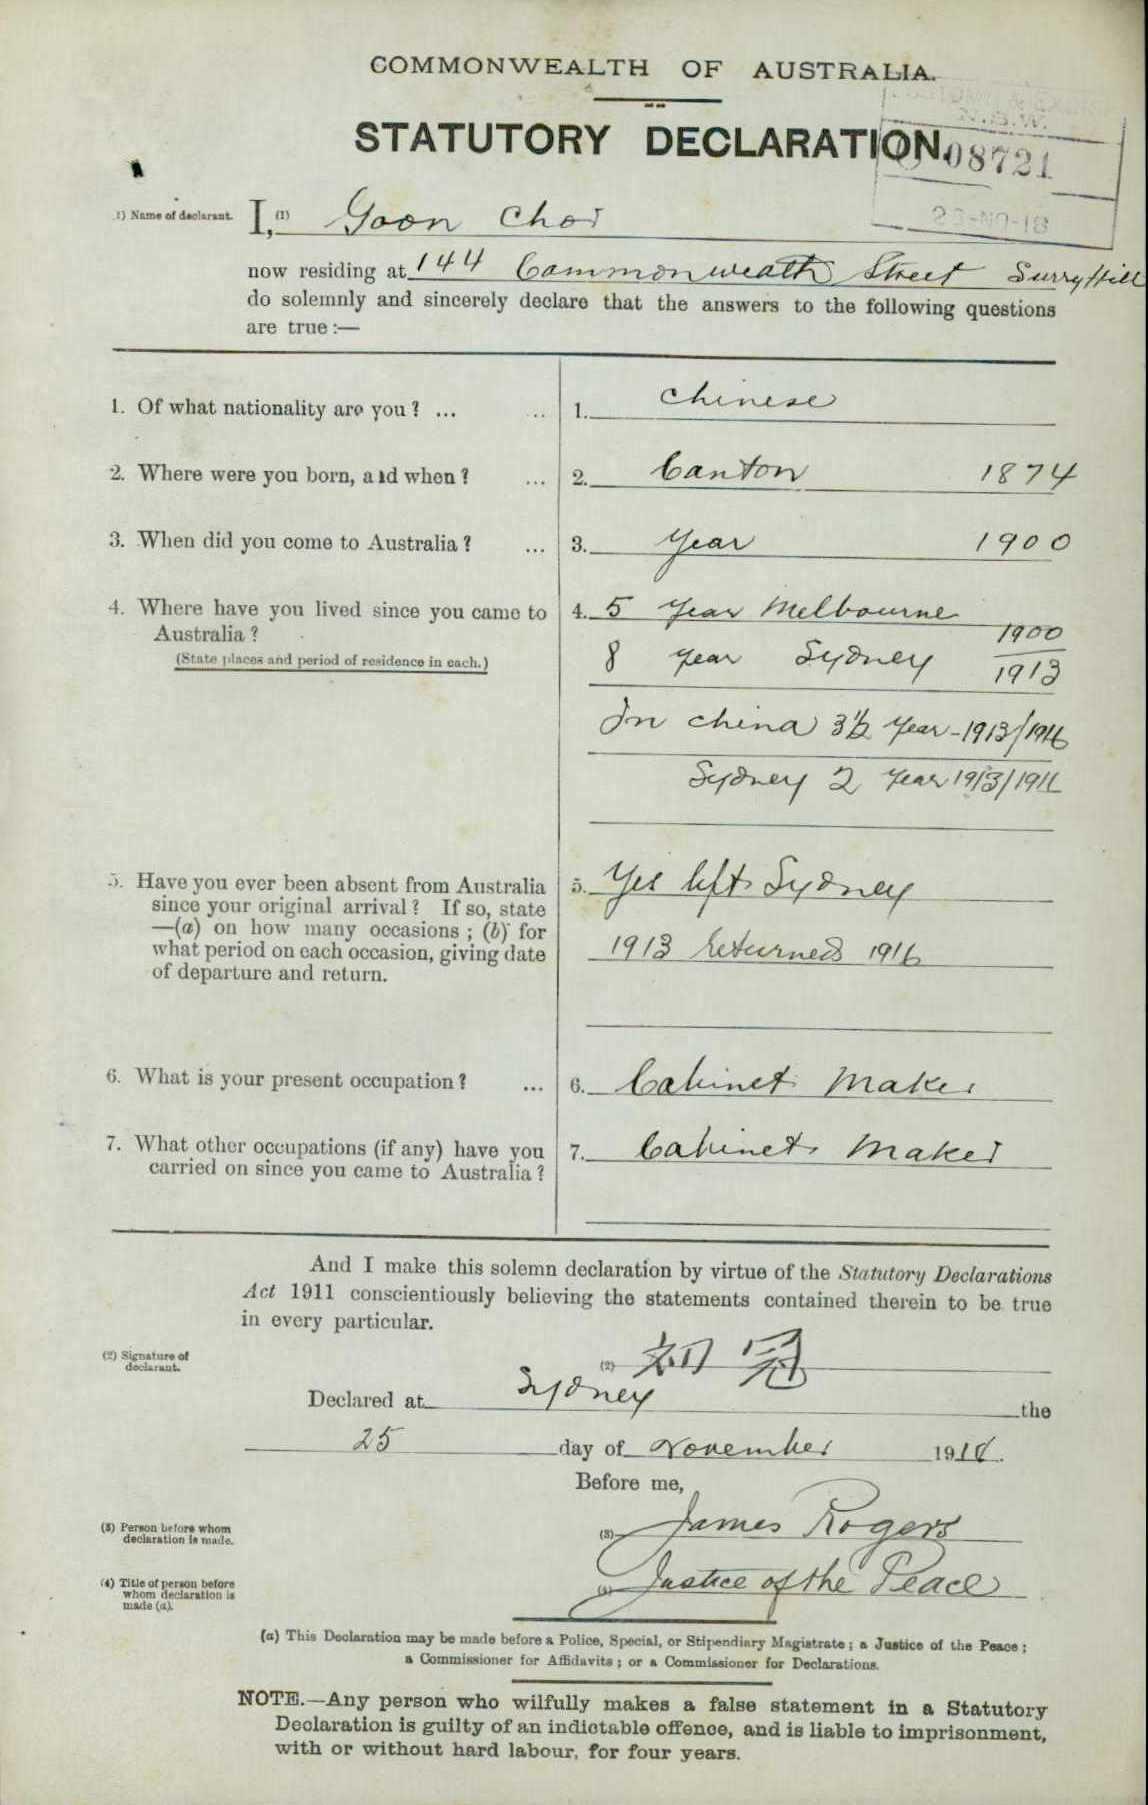 COMMONWEALTH OF AUSTRALIA.
STATUTORY DECLARATION.
N.S.W.
08721
25-NO-18
1) Name of declarant. I, (1) Goon Choi
now residing at 144 Commonweath Street Surry Hill
do solemnly and sincerely declare that the answers to the following questions
are true :—
1. Of what nationality are you ? ... .. 1. Chinese
2. Where were you born, and when ? ... 2. Canton 1874
3. When did you come to Australia ? ... 3. Year 1900
4. Where have you lived since you came to
Australia ?
(State places and period of residence in each.)
4. 5 Year Melbourne
1900
8 year Sydney 1913
In China 3½ Year - 1913/1916
Sydney 2 Year 1913/191
5. Have you ever been absent from Australia
since your original arrival ? If so, state
—(a) on how many occasions ; (b) for
what period on each occasion, giving date
of departure and return.
5. Yes left Sydney
1913 returned 1916
6. What is your present occupation ? ... 6. Cabinet Maker
7. What other occupations (if any) have you
carried on since you came to Australia ?
7. Cabinet Maker
And I make this solemn declaration by virtue of the Statutory Declarations
Act 1911 conscientiously believing the statements contained therein to be true
in every particular.
(2) Signature of
declarant.
(2) 初 冠
Declared at Sydney the
25 day of November 1918.
Before me,
(3) Person before whom
declaration is made.
(3) James Rogers
(4) Title of person before
whom declaration is
made (a).
(4) Justice of the Peace
(a) This Declaration may be made before a Police, Special, or Stipendiary Magistrate ; a Justice of the Peace ;
a Commissioner for Affidavits ; or a Commissioner for Declarations.
NOTE.—Any person who wilfully makes a false statement in a Statutory
Declaration is guilty of an indictable offence, and is liable to imprisonment,
with or without hard labour, for four years.